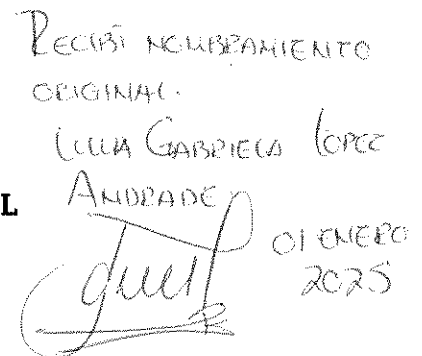 RECIBÍ NOMBRAMIENTO
ORIGINAL.
GABRIELA LOPEZ
ANDRADE
L
01 ENERO
2025